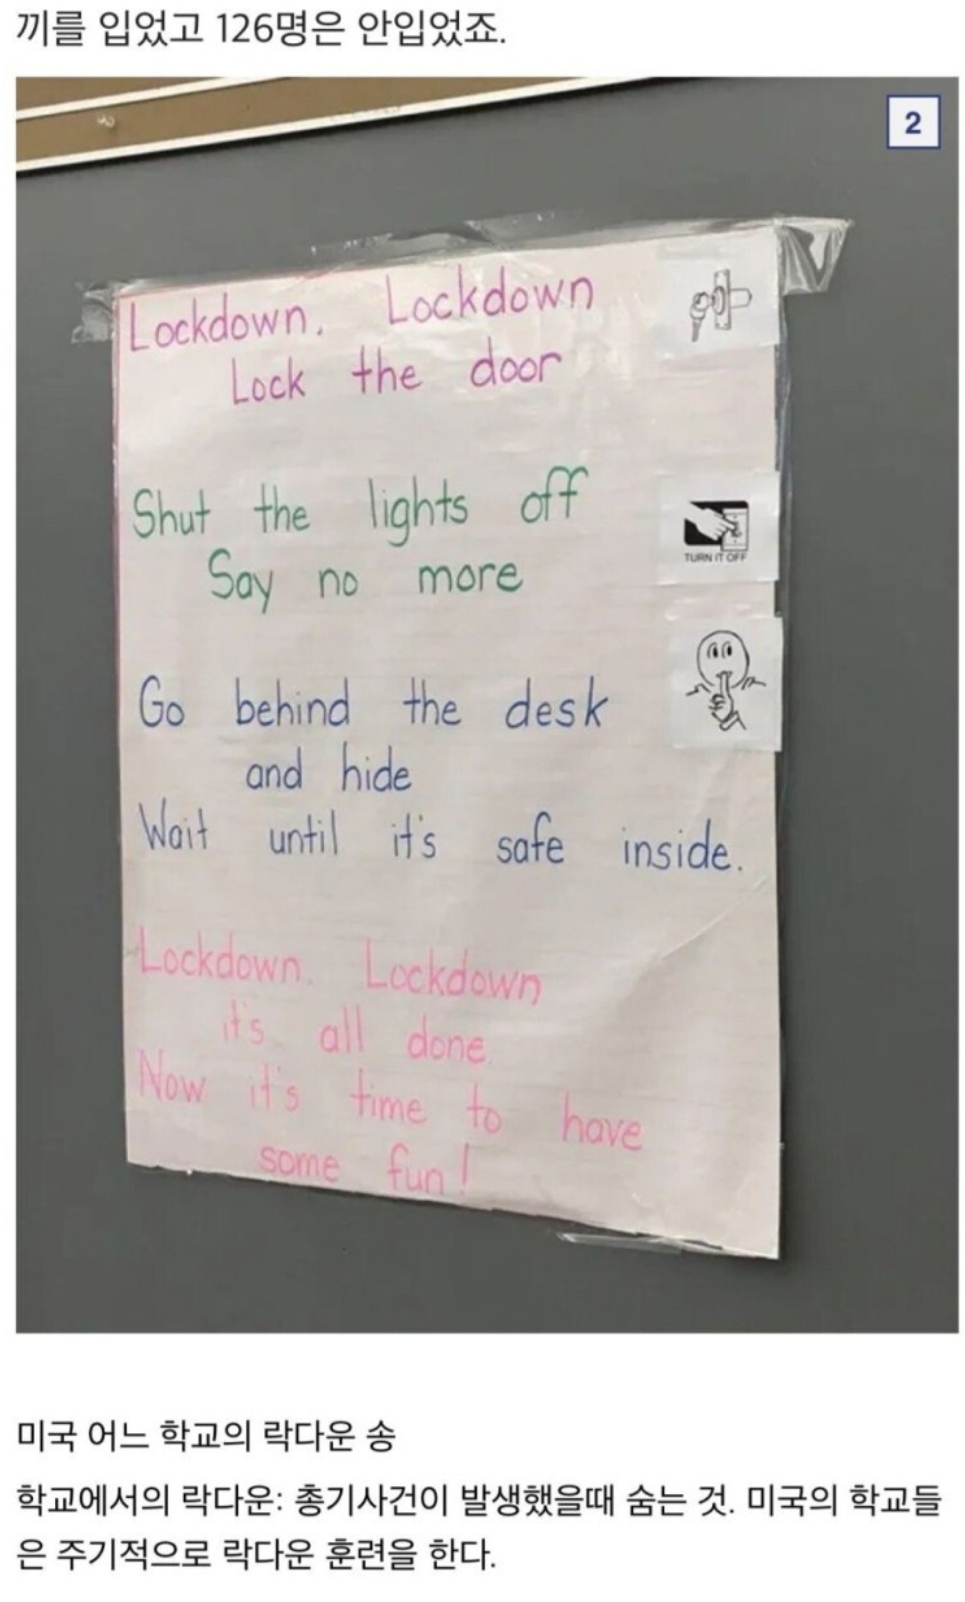 끼를 입었고 126명은 안입었죠.
2
Lockdown, Lockdown
Lock the door
Shut the lights off
Say no more
TURN IT OFF
Go behind the desk
and hide
Wait until it's safe inside.
Lockdown. Lockdown
it's all done.
Now it's time to have
some fun!
미국 어느 학교의 락다운 송
학교에서의 락다운: 총기사건이 발생했을때 숨는 것. 미국의 학교들
은 주기적으로 락다운 훈련을 한다.